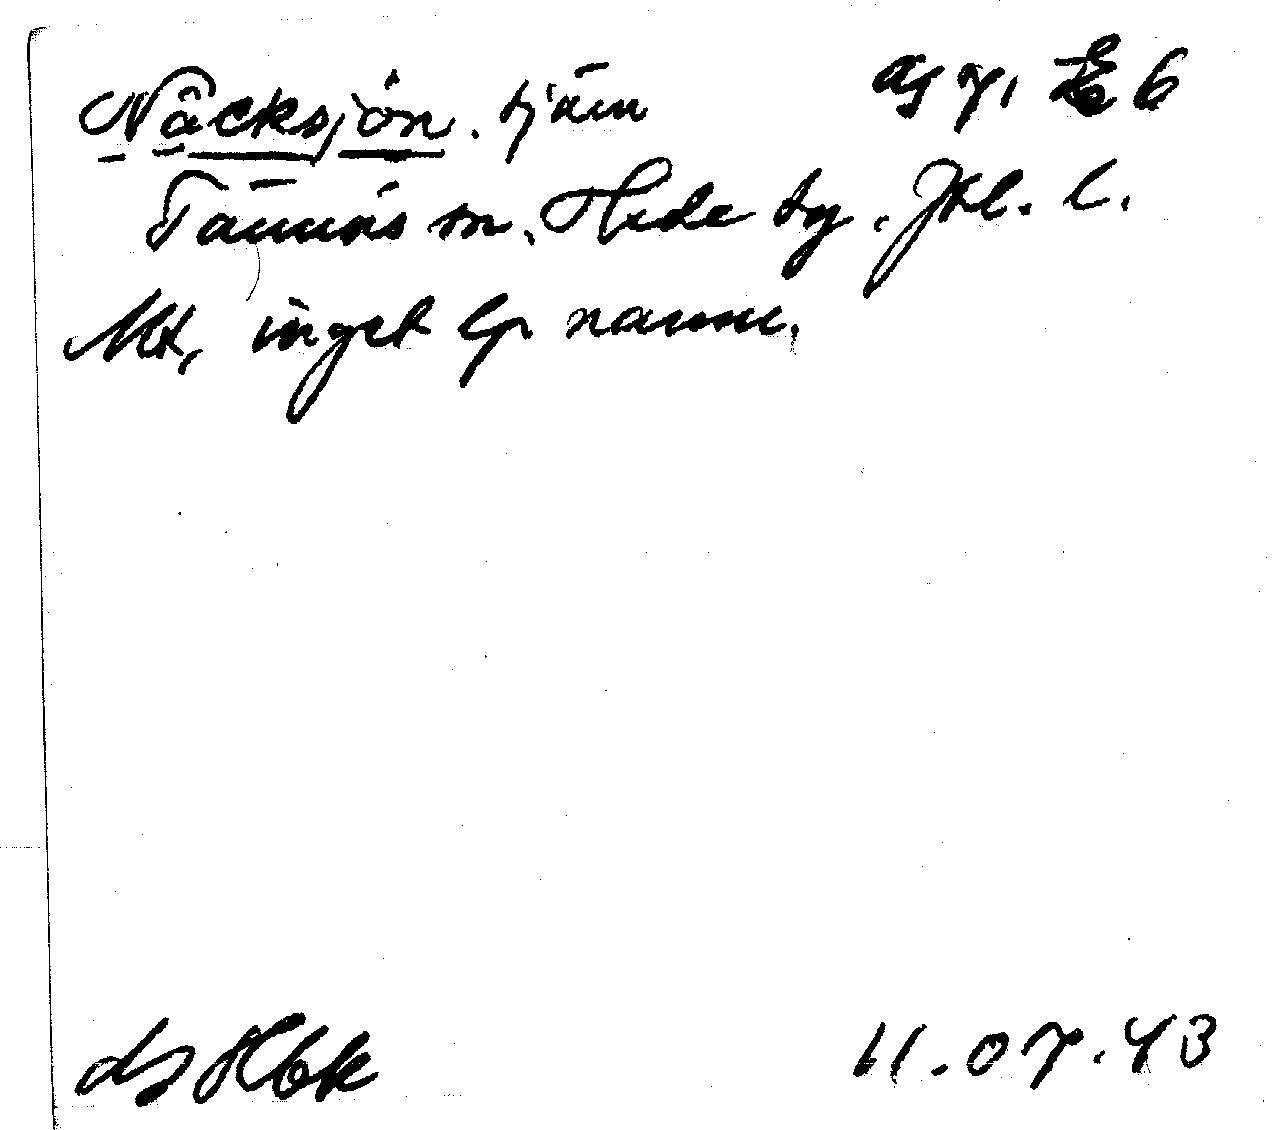 Näcksjön. tjärn
as 71 E 6
Tännäs sn. Hede tg. Jtl. l.
Mt, inget lp namn.
ds Hbk
11.07.43